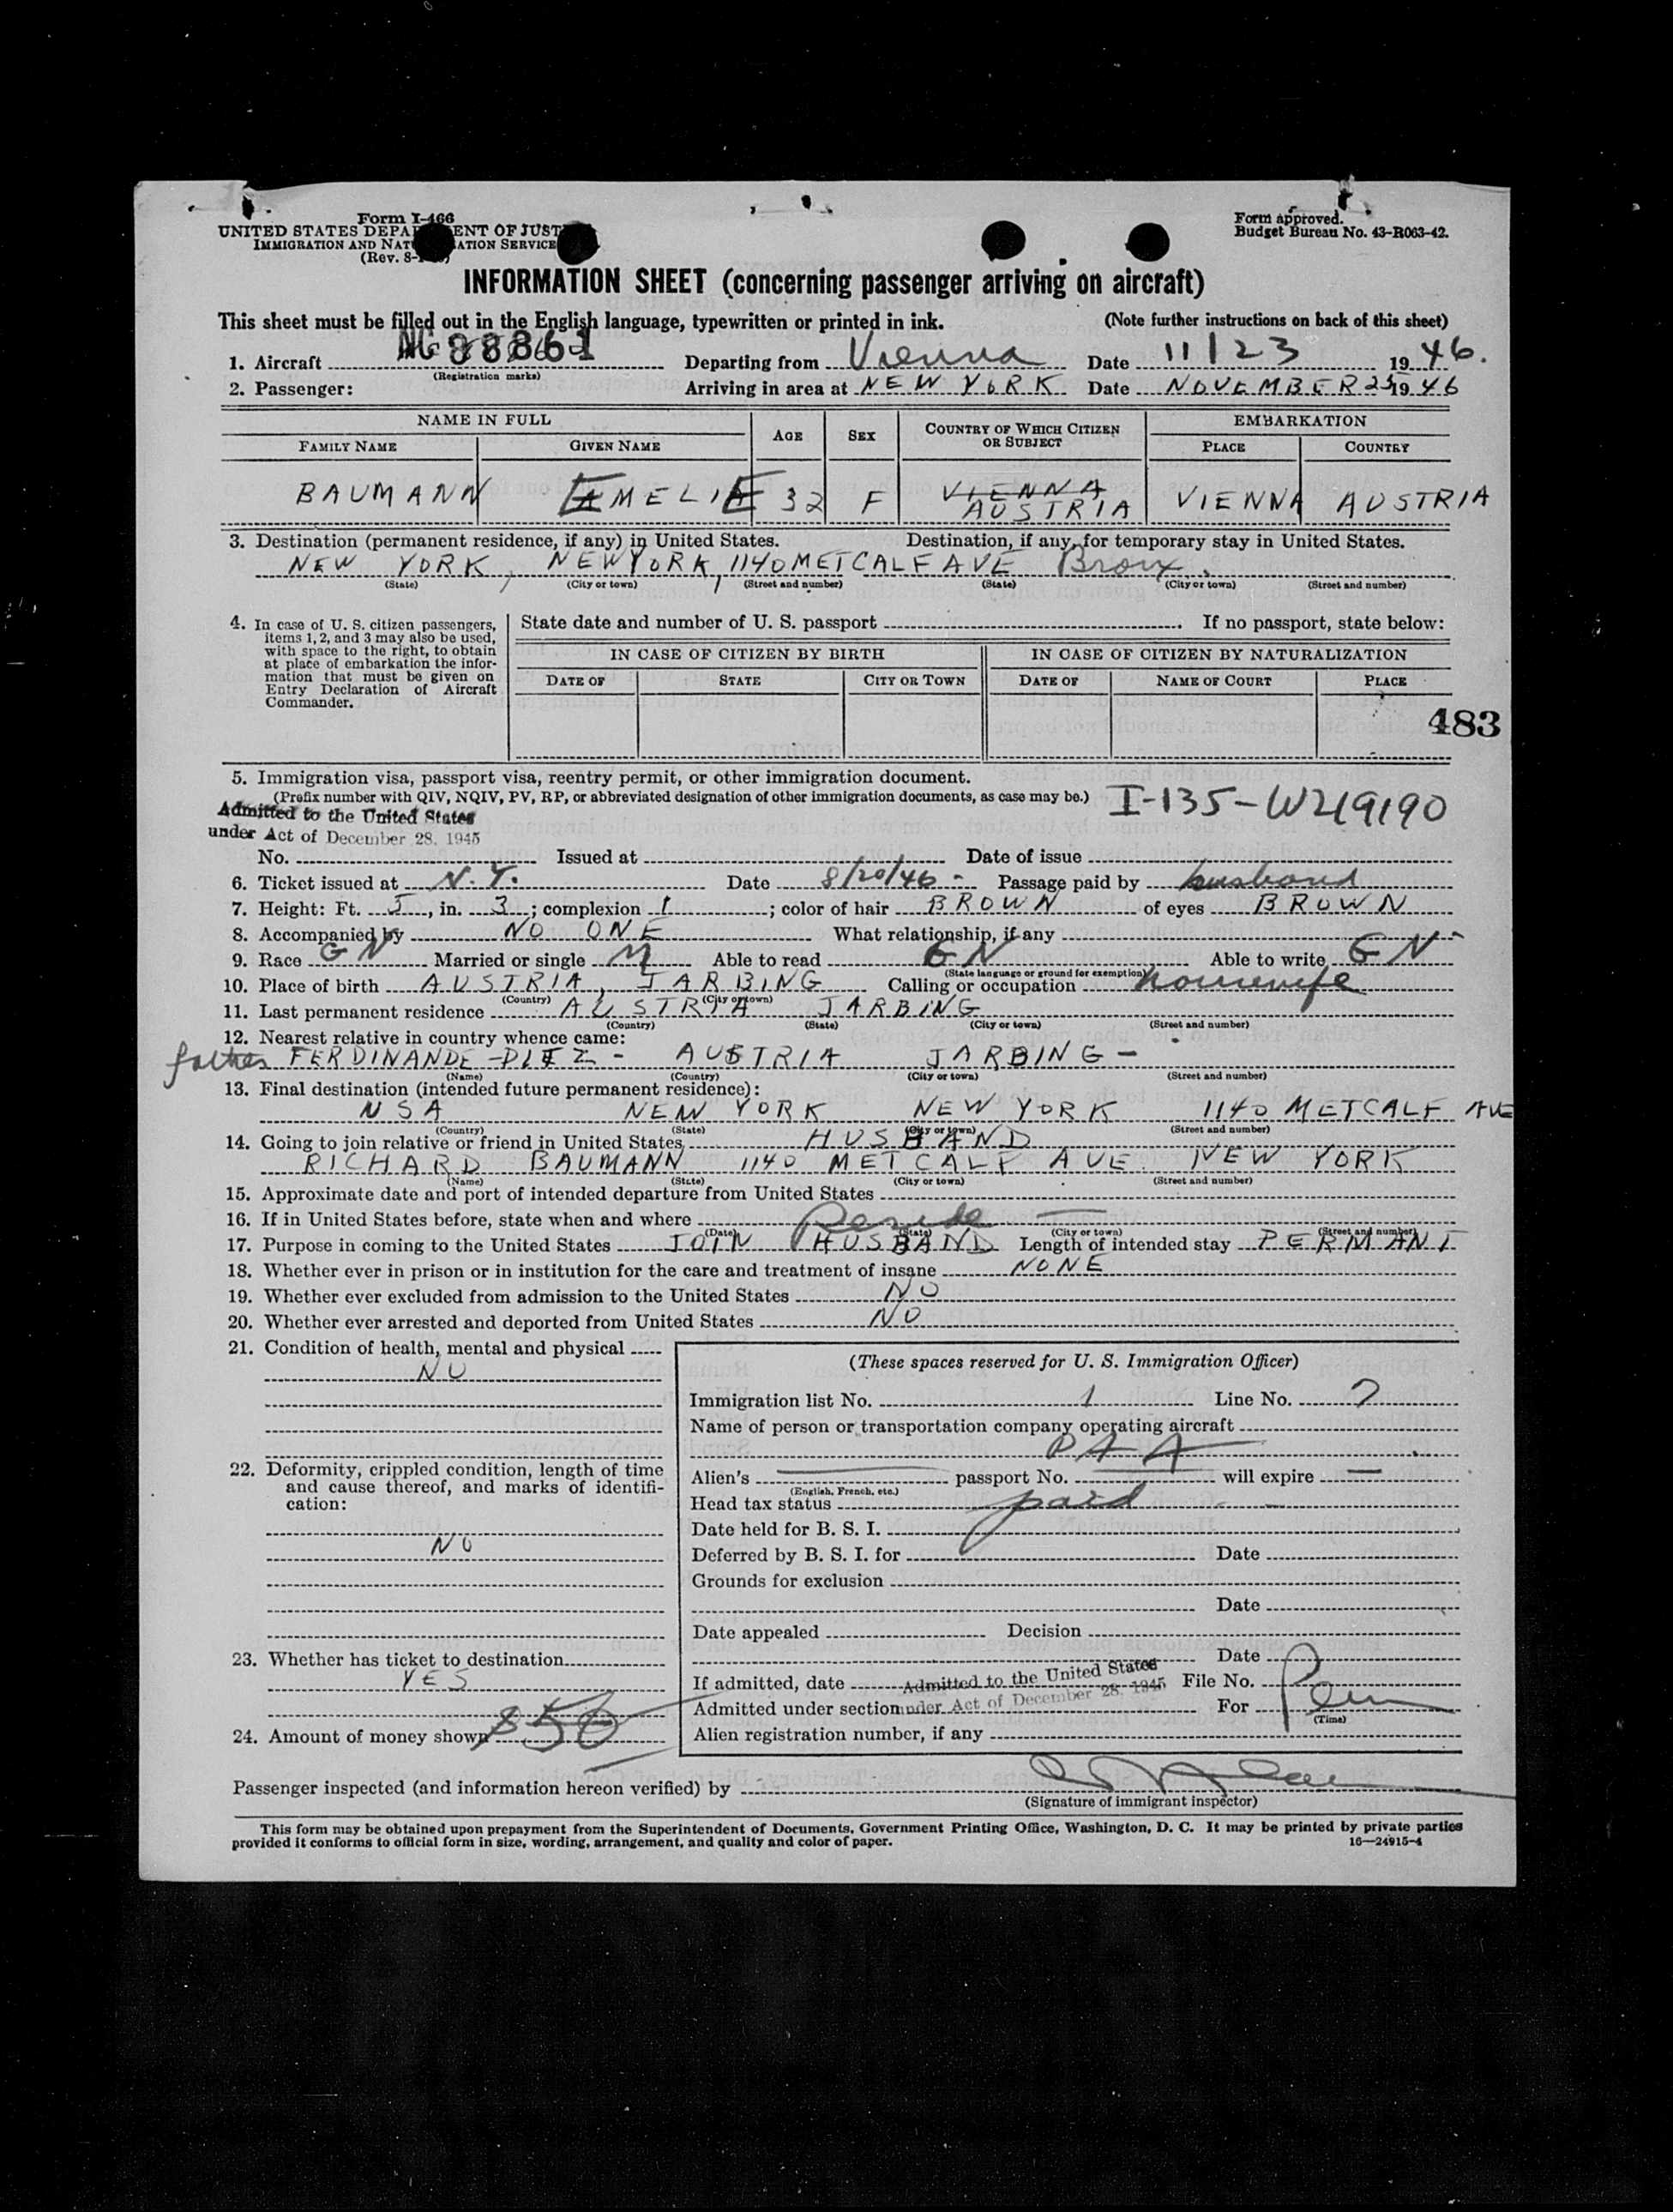 Form I-466
UNITED STATES DEPA ENT OF JUST
IMMIGRATION AND NAT ATION SERVICE
(Rev. 8-
Form approved.
Budget Bureau No. 43-R063-42.
INFORMATION SHEET (concerning passenger arriving on aircraft)
This sheet must be filled out in the English language, typewritten or printed in ink. (Note further instructions on back of this sheet)
1. Aircraft NC 88861 Departing from Vienna Date 11/23 1946.
(Registration marks)
2. Passenger: Arriving in area at NEW YORK Date NOVEMBER 25 1946
NAME IN FULL AGE SEX COUNTRY OF WHICH CITIZEN OR SUBJECT EMBARKATION
FAMILY NAME GIVEN NAME PLACE COUNTRY
BAUMANN EMELIE 32 F VIENNA AUSTRIA VIENNA AUSTRIA
3. Destination (permanent residence, if any) in United States. Destination, if any, for temporary stay in United States.
NEW YORK, NEW YORK, 1140 METCALF AVE Bronx.
(State) (City or town) (Street and number) (State) (City or town) (Street and number)
4. In case of U. S. citizen passengers, items 1, 2, and 3 may also be used, with space to the right, to obtain at place of embarkation the information that must be given on Entry Declaration of Aircraft Commander.
State date and number of U. S. passport If no passport, state below:
IN CASE OF CITIZEN BY BIRTH IN CASE OF CITIZEN BY NATURALIZATION
DATE OF STATE CITY OR TOWN DATE OF NAME OF COURT PLACE
483
5. Immigration visa, passport visa, reentry permit, or other immigration document.
(Prefix number with QIV, NQIV, PV, RP, or abbreviated designation of other immigration documents, as case may be.) I-135-W219190
Admitted to the United States
under Act of December 28, 1945
No. Issued at Date of issue
6. Ticket issued at N.Y. Date 8/20/46 - Passage paid by husband
7. Height: Ft. 5, in. 3; complexion ; color of hair BROWN of eyes BROWN
8. Accompanied by NO ONE What relationship, if any
9. Race GN Married or single M Able to read GN Able to write GN
(State language or ground for exemption)
10. Place of birth AUSTRIA, JARBING Calling or occupation housewife
(Country) (City or town)
11. Last permanent residence AUSTRIA JARBING
(Country) (State) (City or town) (Street and number)
12. Nearest relative in country whence came:
father FERDINANDE - - AUSTRIA JARBING -
(Name) (Country) (City or town) (Street and number)
13. Final destination (intended future permanent residence):
USA NEW YORK NEW YORK 1140 METCALF AVE
(Country) (State) (City or town) (Street and number)
14. Going to join relative or friend in United States HUSBAND
RICHARD BAUMANN 1140 METCALF AVE. NEW YORK
(Name) (State) (City or town) (Street and number)
15. Approximate date and port of intended departure from United States
16. If in United States before, state when and where Reside —
(Date) (State) (City or town) (Street and number)
17. Purpose in coming to the United States JOIN HUSBAND Length of intended stay PERMANT
18. Whether ever in prison or in institution for the care and treatment of insane NONE
19. Whether ever excluded from admission to the United States NO
20. Whether ever arrested and deported from United States NO
21. Condition of health, mental and physical
NO
22. Deformity, crippled condition, length of time and cause thereof, and marks of identification:
NO
23. Whether has ticket to destination
YES
24. Amount of money shown $50
(These spaces reserved for U. S. Immigration Officer)
Immigration list No. 1 Line No. 7
Name of person or transportation company operating aircraft
PAA
Alien's — passport No. — will expire —
(English, French, etc.)
Head tax status paid
Date held for B. S. I.
Deferred by B. S. I. for Date
Grounds for exclusion
Date
Date appealed Decision
Date
If admitted, date Admitted to the United States File No.
Admitted under section under Act of December 28, 1945 For Perm
(Time)
Alien registration number, if any
Passenger inspected (and information hereon verified) by
(Signature of immigrant inspector)
This form may be obtained upon prepayment from the Superintendent of Documents, Government Printing Office, Washington, D. C. It may be printed by private parties
provided it conforms to official form in size, wording, arrangement, and quality and color of paper. 16—24915-4